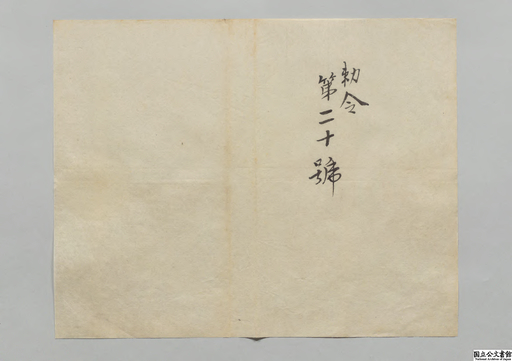 勅令
第二十號
国立公文書館
National Archives of Japan